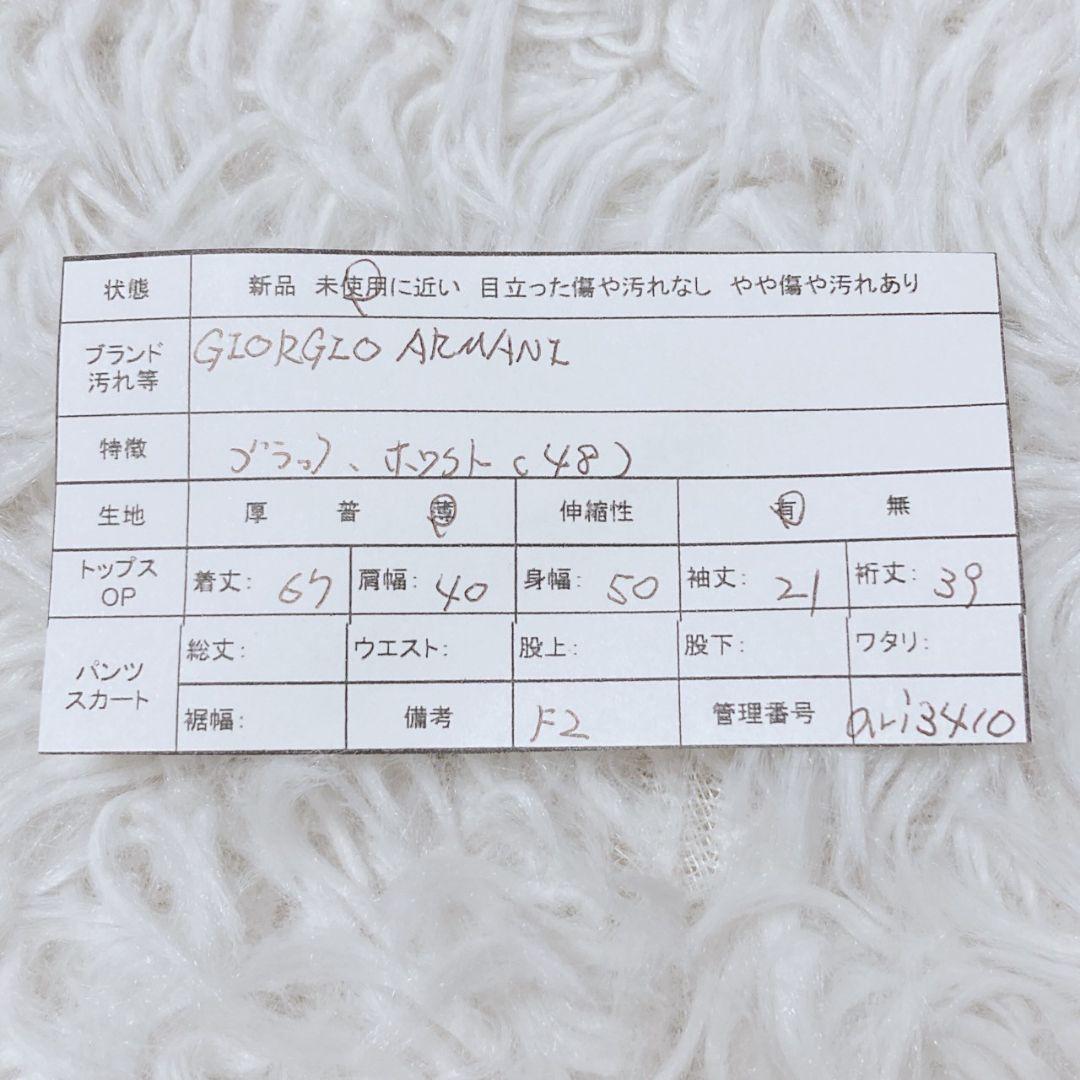 状態 新品 未使用に近い 目立った傷や汚れなし やや傷や汚れあり
ブランド
汚れ等 GIORGIO ARMANI
特徴 ブラック、ホワイト(48)
生地 厚 普 薄 伸縮性 有 無
トップス
OP 着丈: 67 肩幅: 40 身幅: 50 袖丈: 21 裄丈: 39
パンツ
スカート 総丈: ウエスト: 股上: 股下: ワタリ:
裾幅: 備考 F2 管理番号 ari3410